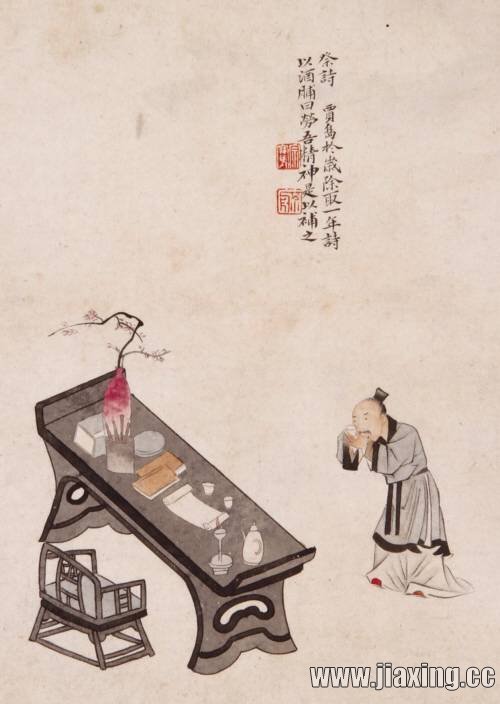 祭詩 賈島於歲除取一年詩
以酒脯曰勞吾精神是以補之
www.jiaxing.cc